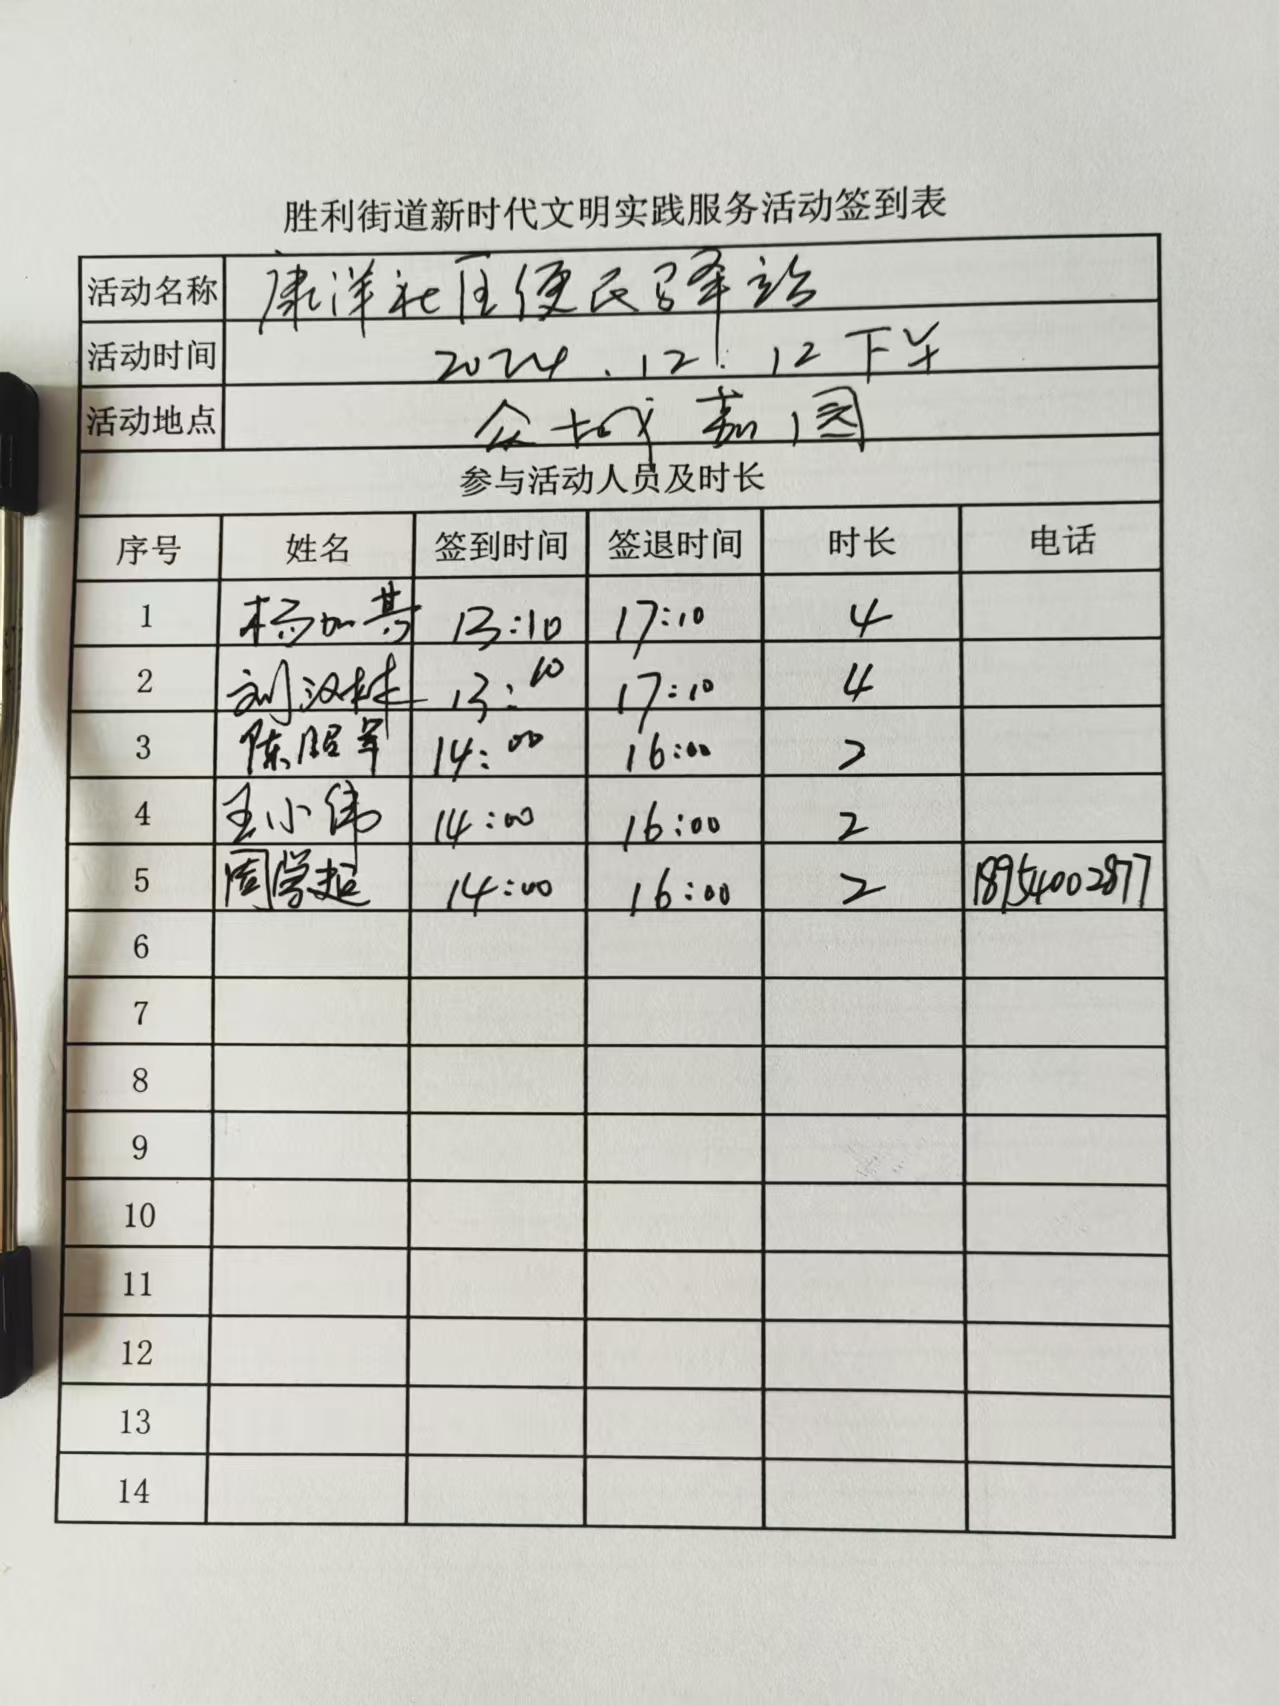 胜利街道新时代文明实践服务活动签到表
活动名称 康洋社区便民驿站
活动时间 2024.12.12下午
活动地点 众城嘉园
参与活动人员及时长
序号 姓名 签到时间 签退时间 时长 电话
1 杨加其 13:10 17:10 4
2 刘汉林 13:10 17:10 4
3 陈昭军 14:00 16:00 2
4 王小伟 14:00 16:00 2
5 周学超 14:00 16:00 2 18954002877
6
7
8
9
10
11
12
13
14